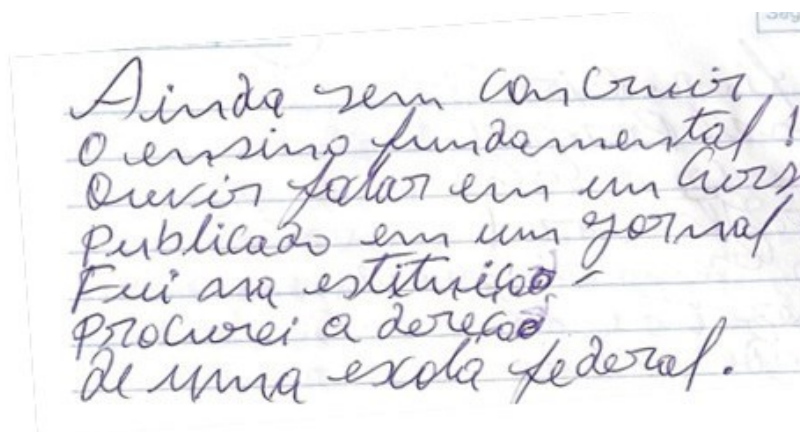 Ainda sem concruir
O ensino fundamental!
Ouvir falar em um Curs
Publicado em um jornal
Fui ana estituição -
Procurei a dereção
de uma escola federal.